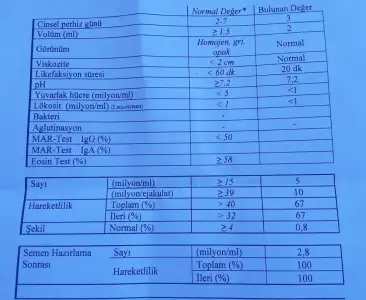 Normal Değer* Bulunan Değer
Cinsel perhiz günü 2-7 3
Volüm (ml) ≥ 1,5 2
Görünüm Homojen, gri, opak Normal
Viskozite < 2 cm Normal
Likefaksiyon süresi < 60 dk 20 dk
pH ≥7,2 7,2
Yuvarlak hücre (milyon/ml) < 5 <1
Lökosit (milyon/ml) < 1 <1
Bakteri -
Aglutinasyon - -
MAR-Test IgG (%) < 50
MAR-Test IgA (%)
Eosin Test (%) ≥ 58
Sayı (milyon/ml) ≥ 15 5
(milyon/ejakulat) ≥ 39 10
Hareketlilik Toplam (%) > 40 67
İleri (%) > 32 67
Şekil Normal (%) ≥ 4 0,8
Semen Hazırlama Sonrası Sayı (milyon/ml) 2,8
Hareketlilik Toplam (%) 100
İleri (%) 100